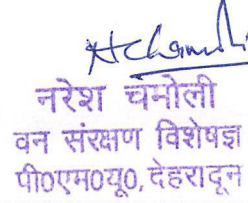 नरेश चमोली
वन संरक्षण विशेषज्ञ
पी०एम०यू०, देहरादून